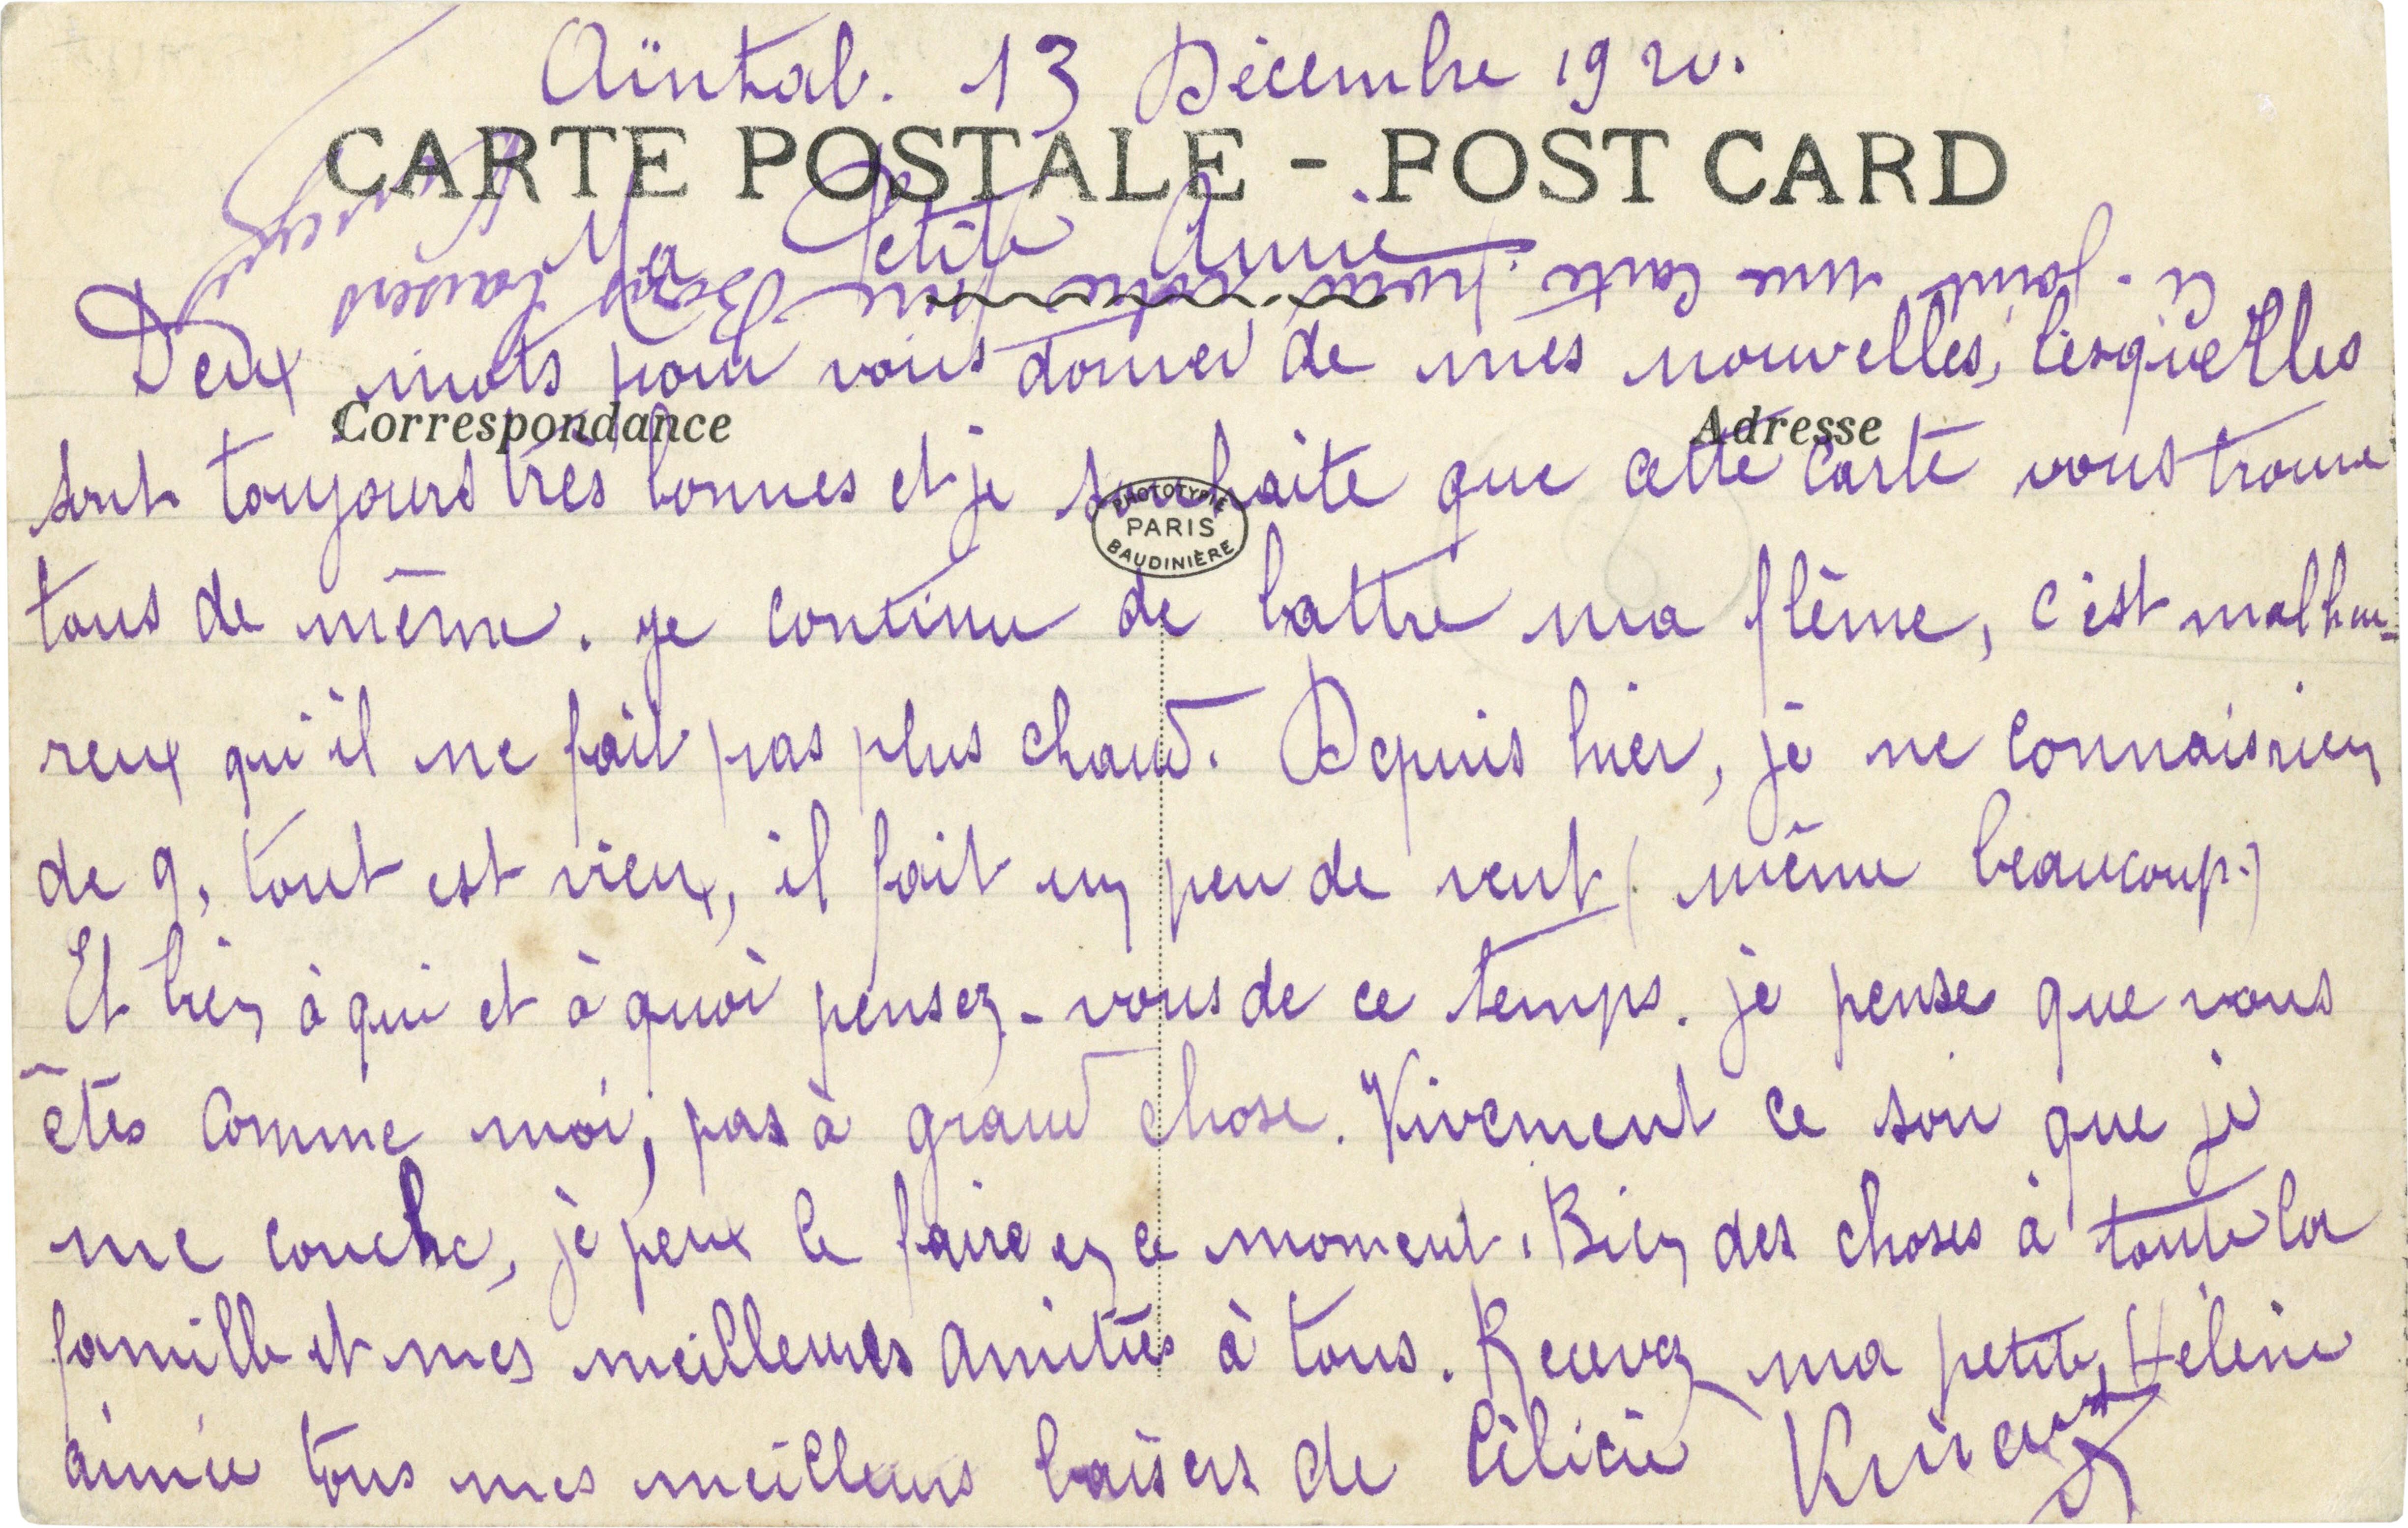 Aïntab. 13 Décembre 1920.
CARTE POSTALE - POST CARD
Ma Petite Amie
Deux mots pour vous donner de mes nouvelles, lesquelles
Correspondance
Adresse
sont toujours très bonnes et je souhaite que cette carte vous trouve
PHOTOTYPIE
PARIS
BAUDINIÈRE
tous de même. je continue de battre ma flême, c'est malheu-
reux qu'il ne fait pas plus chaud. Depuis hier, je ne connais rien
de 9, tout est vieux, il fait un peu de vent (même beaucoup.)
Et bien à qui et à quoi pensez-vous de ce temps. je pense que vous
êtes comme moi, pas à grand chose. Vivement ce soir que je
me couche, je peux le faire en ce moment. Bien des choses à toute la
famille et mes meilleures amitiés à tous. Recevez ma petite Hélène
aimée tous mes meilleurs baisers de Cilicie
ci-joint une carte pour
Bons baisers